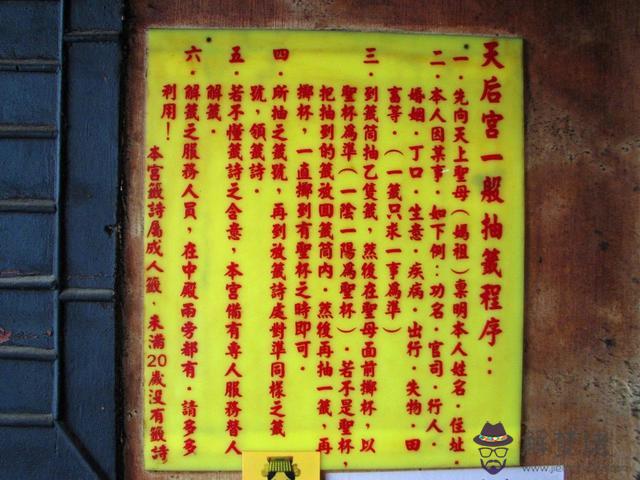 天后宮一般抽籤程序：
一．先向天上聖母（媽祖）稟明本人姓名．住址．
二．本人因某事．如下例：功名．官司．行人．
婚姻．丁口．生意．疾病．出行．失物．田
畜等．（一籤只求一事為準）
三．到籤筒抽乙隻籤，然後在聖母面前擲杯，以
聖杯為準（一陰一陽為聖杯）．若不是聖杯，
把抽到的籤放回籤筒內．然後再抽一籤，再
擲杯，一直擲到有聖杯之時即可．
四．所抽之籤號，再到放籤詩處對準同樣之籤
號，領籤詩．
五．若不懂籤詩之含意，本宮備有專人服務替人
解籤．
六．解籤之服務人員，在中殿兩旁都有．請多多
利用！
本宮籤詩屬成人籤．未滿20歲沒有籤詩